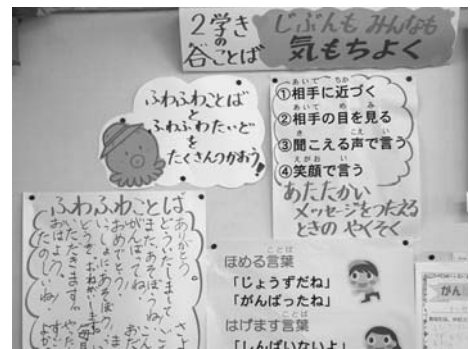 2学きの
谷ことば
じぶんも みんなも
気もちよく
ふわふわことば
と
ふわふわたいど
を
たくさんつかおう!
あいて ちか
①相手に近づく
あいて め み
②相手の目を見る
き こえ い
③聞こえる声で言う
えがお い
④笑顔で言う
あたたかい
メッセージをつたえる
ときの やくそく
ふわふわことば
ありがとう。
どういたしまして
また、あそぼうね
がんばってね。
おめでとう。
いっしょにあそぼう。
どうぞ。おねがいします
いただきます。
おはよう。
たのしいね!
ことば
ほめる言葉
「じょうずだね」
「がんばったね」
ことば
はげます言葉
「しんぱいないよ」
がん